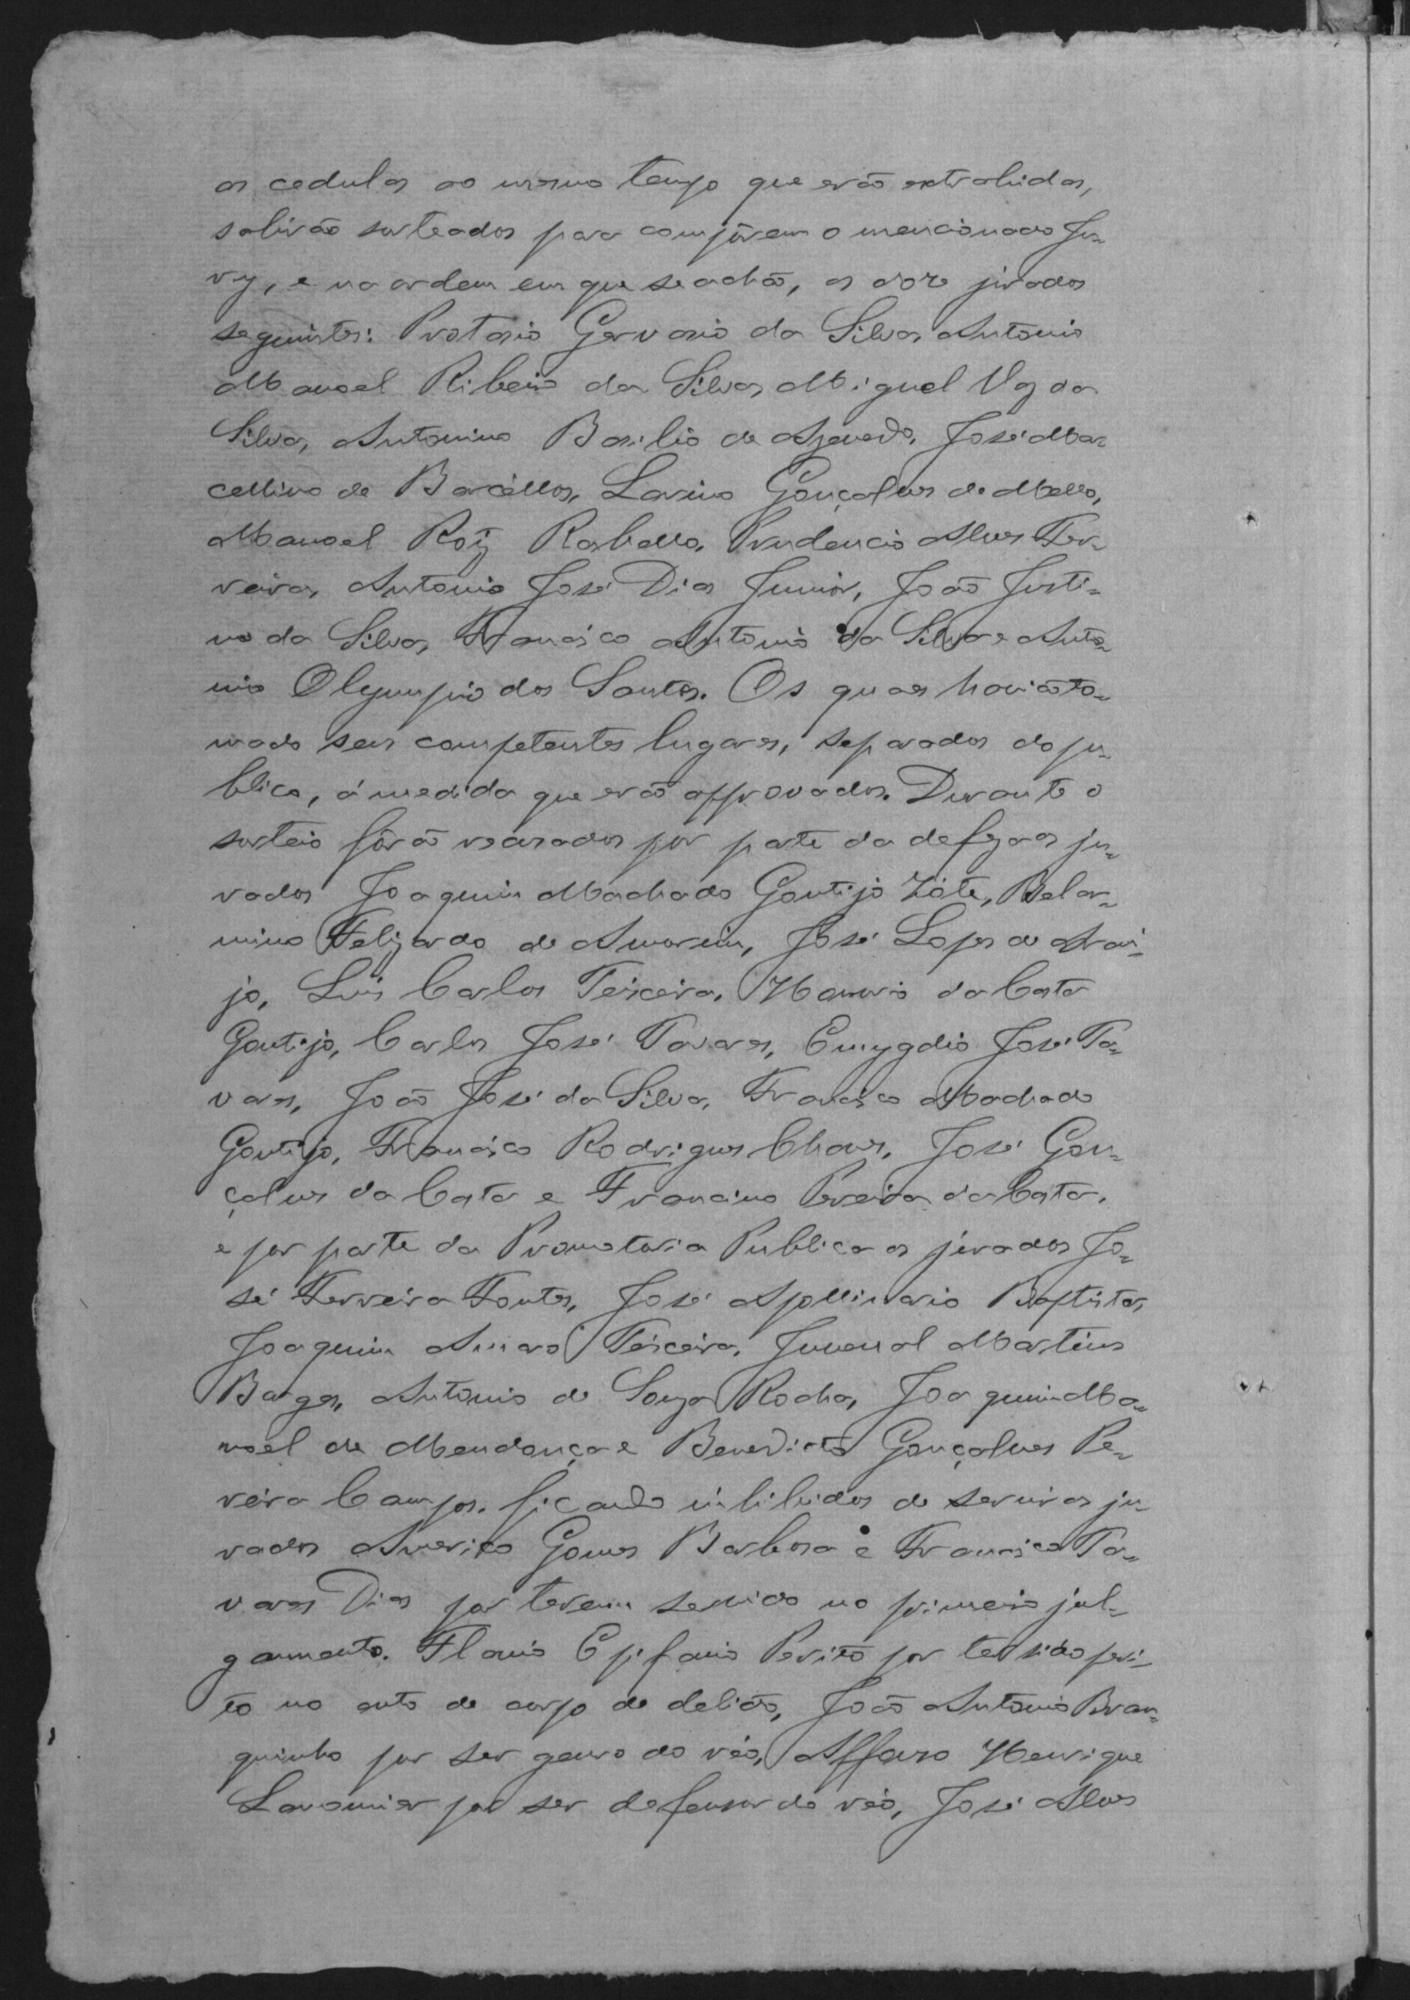 as cedulas ao mesmo tempo que erão extrahidas,
sahirão sorteados para compôrem o mencionado Ju-
ry, e na ordem em que se achão, os doze jurados
seguintes: Protasio Gervasio da Silva, Antonio
Manoel Ribeiro da Silva, Miguel Vaz da
Silva, Antonino Basilio de Azevedo, José Mar-
cellino de Barcellos, Gonçalves de Mello,
Manoel Roiz Rabello, Prudencio Alves Fer-
reira, Antonio José Dias Junior, João Justi-
no da Silva, Francisco Antonio da Silva e Anto-
nio Olympio dos Santos. Os quaes havião to-
mado seus competentes lugares, separados do pu-
blico, á medida que erão approvados. Durante o
sorteio fôrão recusados por parte da defeza os ju-
rados Joaquim Machado Gontijo Zóte, Belar-
mino Felizardo de Amorim, José Lopes de Arau-
jo, Luis Carlos Teixeira, Honorio da Costa
Gontijo, Carlos José Tavares, Emygdio José Ta-
vares, João José da Silva, Francisco Machado
Gontijo, Francisco Rodrigues Chaves, José Gon-
çalves da Costa e Francino Pereira da Costa,
e por parte da Promotoria Publica os jurados Jo-
sé Ferreira Fontes, José Apollinario Baptista,
Joaquim Amaro Teixeira, Juvenal Martins
Borges, Antonio de Souza Rocha, Joaquim Ma-
noel de Mendonça e Benedicto Gonçalves Pe-
reira Campos, ficando inhibidos de servir os ju-
rados Americo Gomes Barbosa e Francisco Ta-
vares Dias por terem servido no primeiro jul-
gamento. Flavio Epifanio Perito por ter sido peri-
to no auto de corpo de delicto, João Antonio Bran-
quinho por ser genro do réo, Affonso Henrique
por ser defensor do réo, José Alves